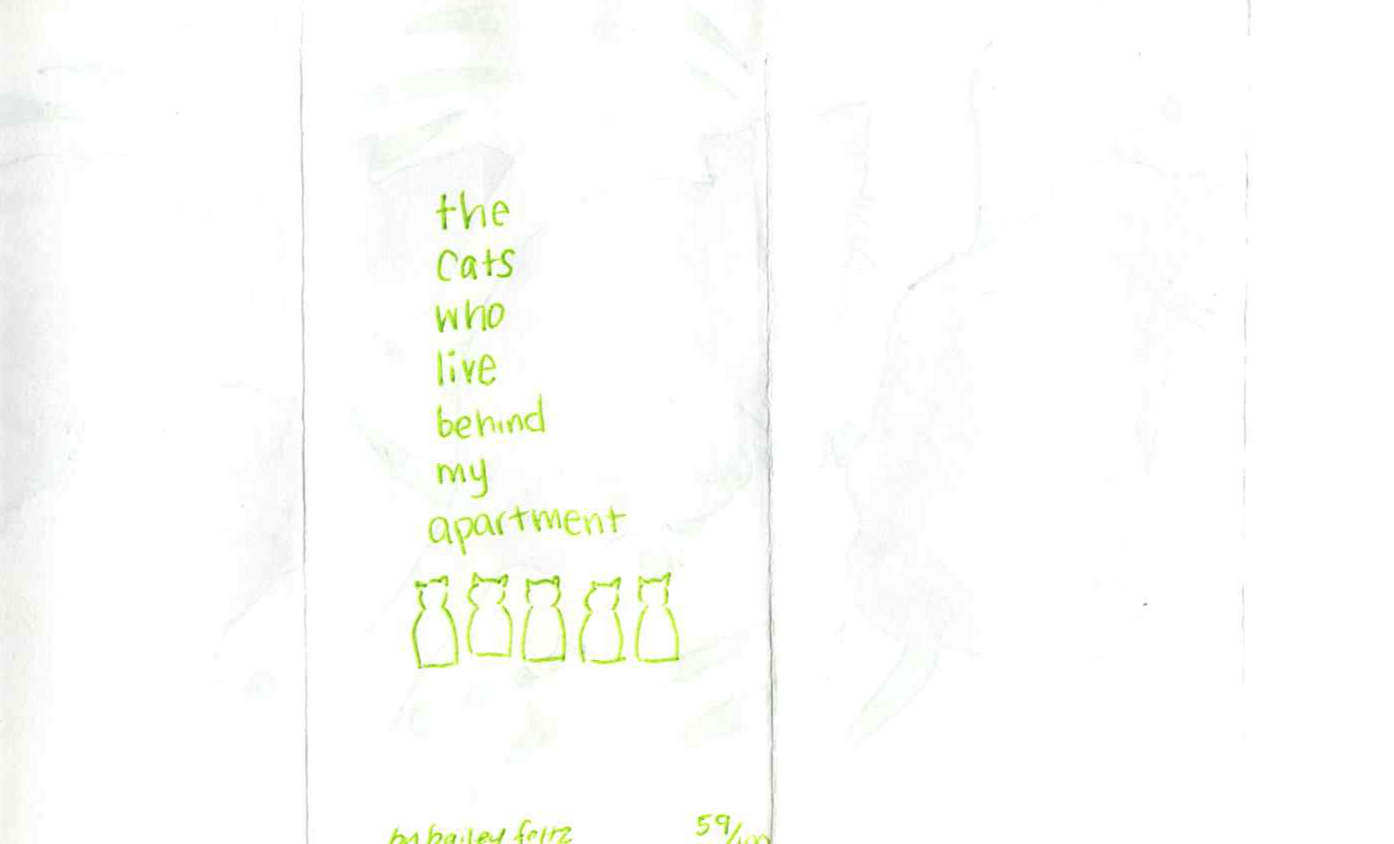 the
cats
who
live
behind
my
apartment
by bailey foltz 59/100